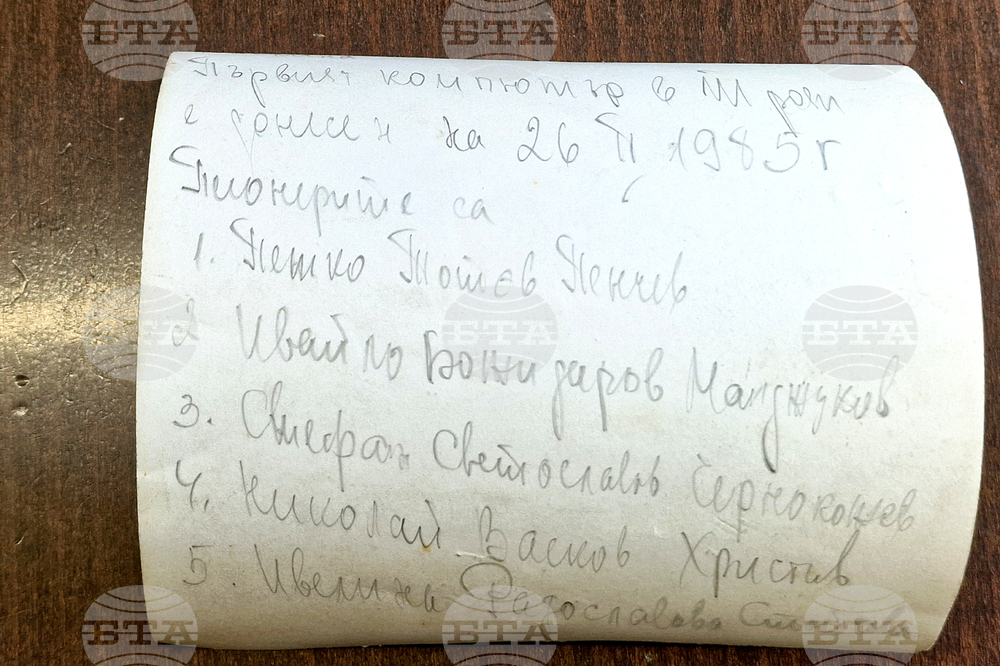 Първият компютър в Троян
е донесен на 26 II 1985 г
Пионерите са
1. Пешко Тотев Пенчев
2 Ивайло Божидаров Манджуков
3. Стефан Светославов Чернокожев
4. Николай Васков Христов
5. Ивелина Радославова
БТА
БТА
БТА
БТА
БТА
БТА
БТА
БТА
БТА